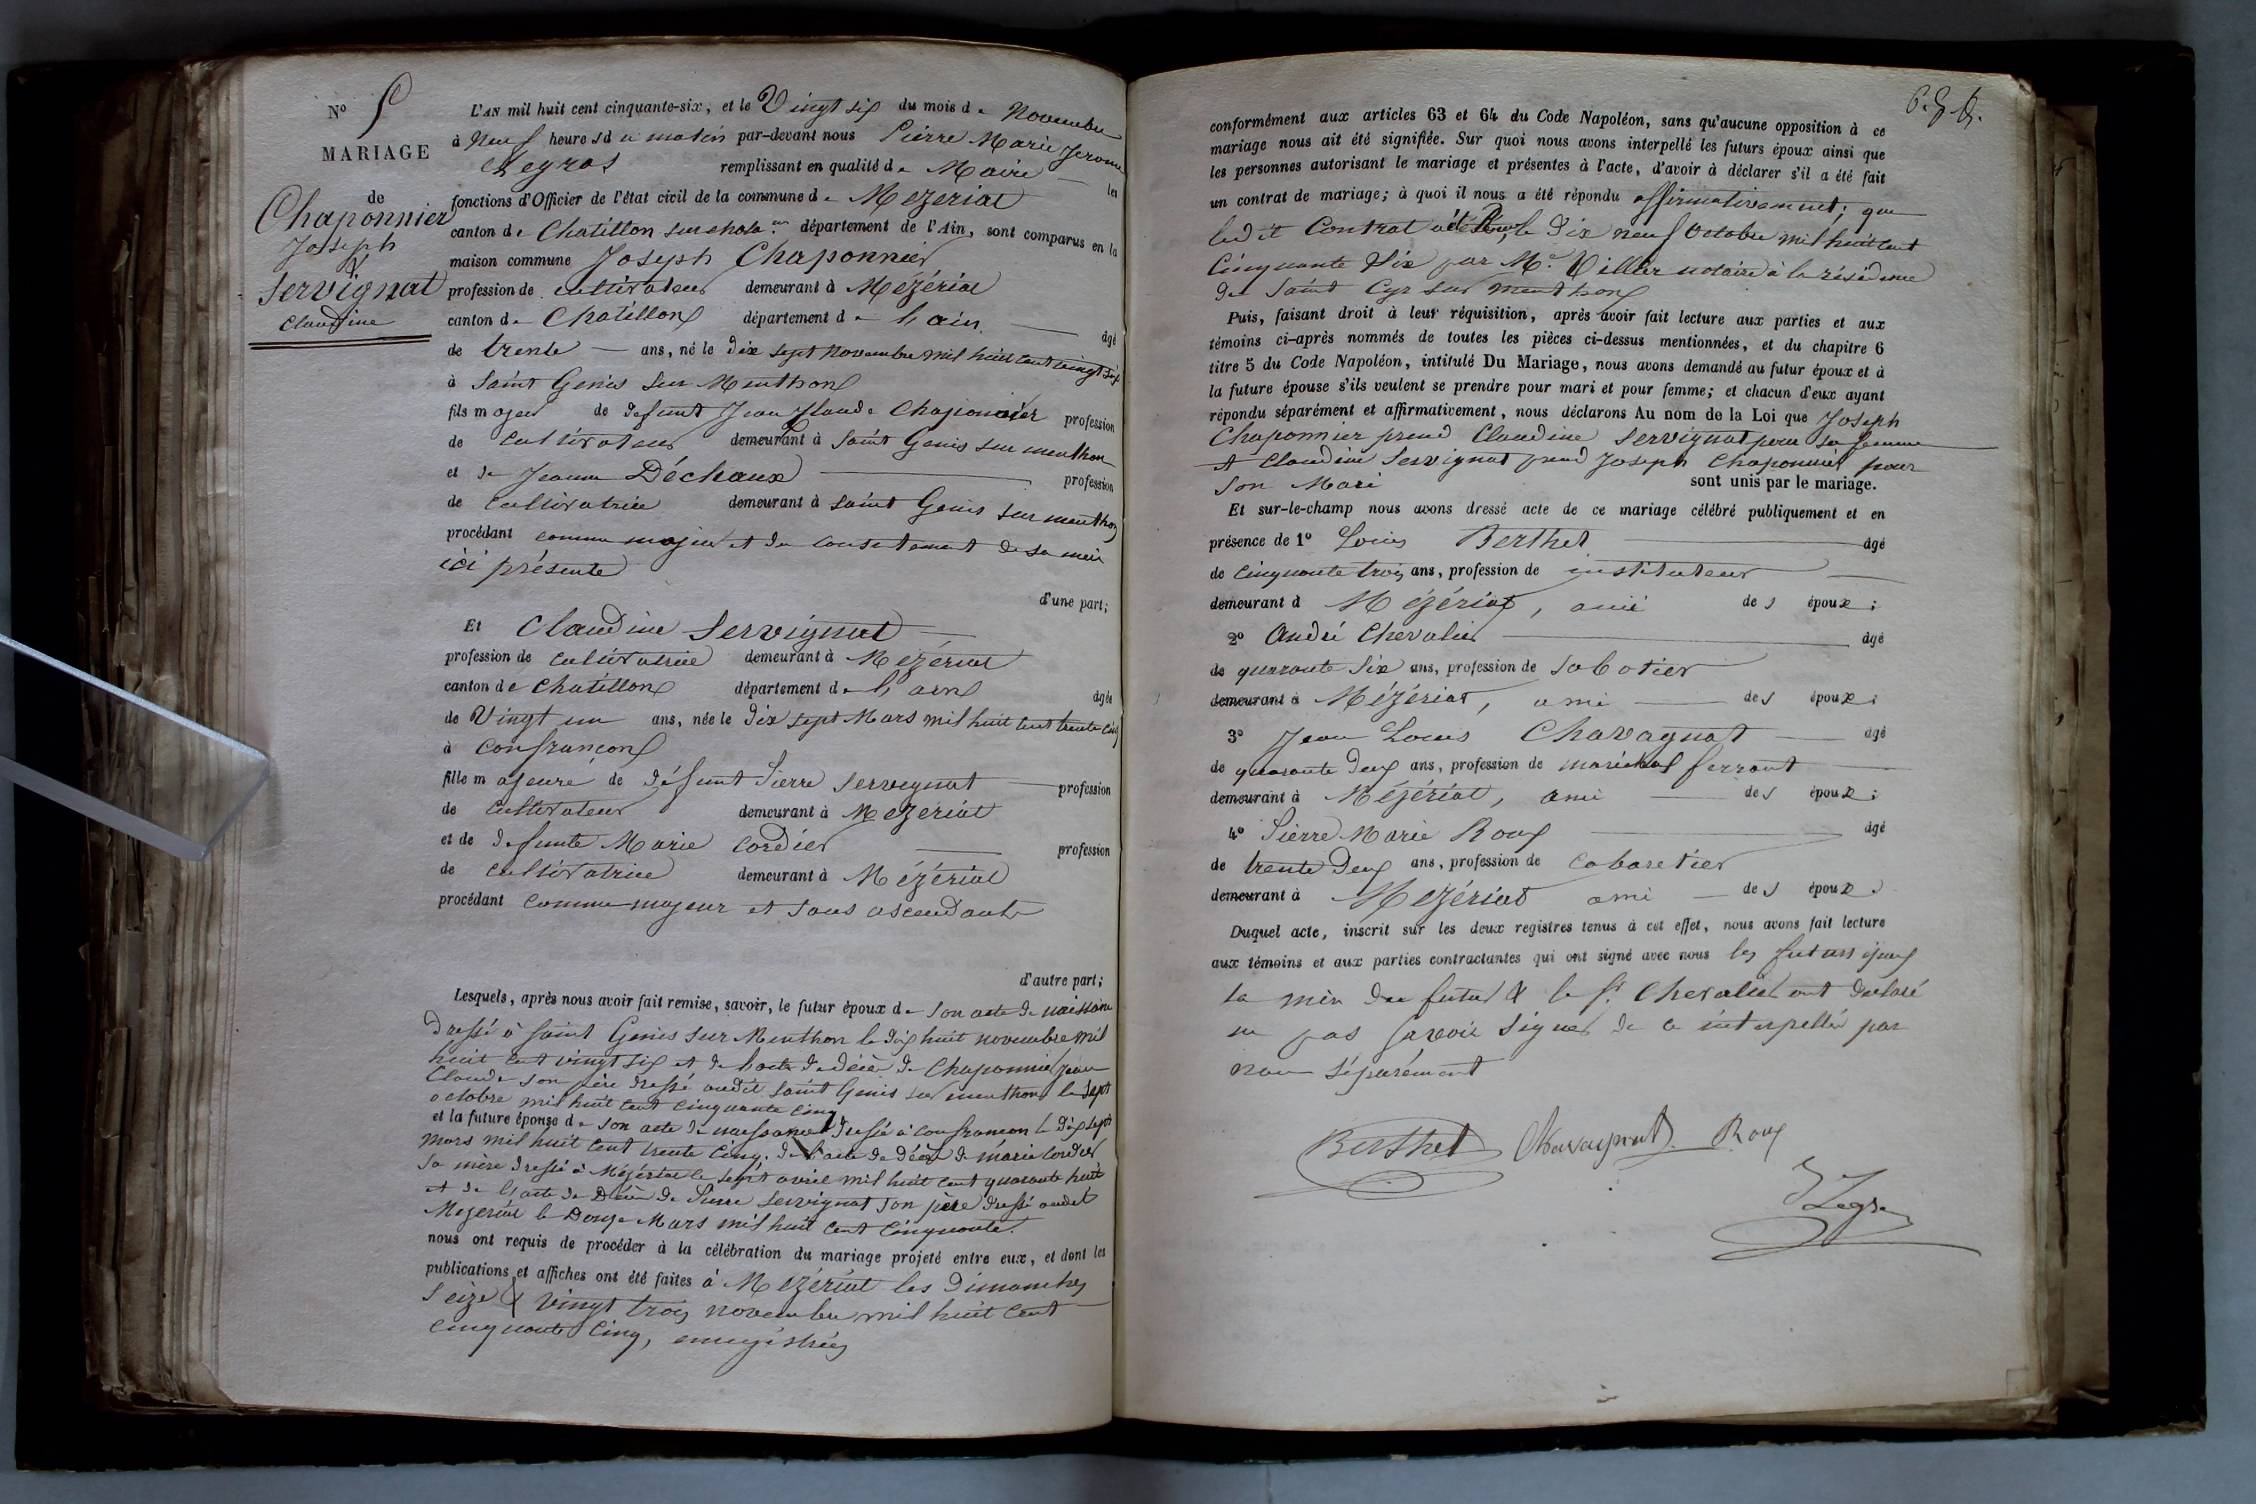 N° 5
MARIAGE
de
Chaponnier
Joseph
&
Servignat
Claudine
L'AN mil huit cent cinquante-six, et le Vingt six du mois de Novembre
à Neuf heures du matin par-devant nous Pierre Marie Jerome
remplissant en qualité de Maire les
fonctions d'Officier de l'état civil de la commune de Mezeriat
canton de Chatillon sur département de l'Ain, sont comparus en la
maison commune Joseph Chaponnier
profession de cultivateur demeurant à Mézériat
canton de Chatillon département de l'ain âgé
de trente ans, né le dix sept novembre mil huit cent vingt six
à Saint Genis sur Menthon
fils majeur de defunt Jean Claude Chaponnier profession
de cultivateur demeurant à Saint Genis sur menthon
et de Jeanne Déchaux profession
de cultivatrice demeurant à saint Genis sur menthon
procédant comme majeur et du consentement de sa mère
ici présente
d'une part;
Et Claudine Servignat
profession de cultivatrice demeurant à Mézériat
canton de Chatillon département de l'ain âgée
de Vingt un ans, née le dix sept Mars mil huit cent trente cinq
à Confrançon
fille majeure de défunt Pierre Servignat profession
de cultivateur demeurant à Mezeriat
et de defunte Marie Cordier profession
de cultivatrice demeurant à Mézériat
procédant comme majeur et sans ascendants
d'autre part;
Lesquels, après nous avoir fait remise, savoir, le futur époux de son acte de naissance
dressé à Saint Genis sur Menthon le dix huit novembre mil
huit cent vingt six et de l'acte de décès de Chaponnier Jean
Claude son père dressé audit saint Genis sur menthon le sept
octobre mil huit cent cinquante cinq
et la future épouse de son acte de naissance dressé à confrancon le dix sept
mars mil huit cent trente cinq. de l'acte de décès de marie Cordier
sa mère dressé à Mézériat le sept avril mil huit cent quarante huit
et de l'acte de Décès de Pierre Servignat son père dressé audit
Mezeriat le Douze Mars mil huit cent cinquante.
nous ont requis de procéder à la célébration du mariage projeté entre eux, et dont les
publications et affiches ont été faites à Mézériat les Dimanches
Seize & vingt trois novembre mil huit cent
cinquante cinq, enregistrées
conformément aux articles 63 et 64 du Code Napoléon, sans qu'aucune opposition à ce
mariage nous ait été signifiée. Sur quoi nous avons interpellé les futurs époux ainsi que
les personnes autorisant le mariage et présentes à l'acte, d'avoir à déclarer s'il a été fait
un contrat de mariage; à quoi il nous a été répondu affirmativement; que
ledit Contrat a été le dix neuf Octobre mil huit cent
Cinquante Six par Me. Villier notaire à la résidence
de Saint Cyr sur menthon
Puis, faisant droit à leur réquisition, après avoir fait lecture aux parties et aux
témoins ci-après nommés de toutes les pièces ci-dessus mentionnées, et du chapitre 6
titre 5 du Code Napoléon, intitulé Du Mariage, nous avons demandé au futur époux et à
la future épouse s'ils veulent se prendre pour mari et pour femme; et chacun d'eux ayant
répondu séparément et affirmativement, nous déclarons Au nom de la Loi que Joseph
Chaponnier prend Claudine Servignat pour sa femme
et Claudine Servignat prend Joseph Chaponnier pour
son Mari sont unis par le mariage.
Et sur-le-champ nous avons dressé acte de ce mariage célébré publiquement et en
présence de 1° Louis Berthet âgé
de cinquante trois ans, profession de instituteur
demeurant à Mézériat, ami des époux;
2° André Chevalier âgé
de quarante six ans, profession de sabotier
demeurant à Mézériat, ami des époux;
3° Jean Louis Chavagnat âgé
de quarante deux ans, profession de maréchal ferrant
demeurant à Mézériat, ami des époux;
4° Pierre Marie Roux âgé
de trente deux ans, profession de cabaretier
demeurant à Mézériat ami des époux.
Duquel acte, inscrit sur les deux registres tenus à cet effet, nous avons fait lecture
aux témoins et aux parties contractantes qui ont signé avec nous les futurs époux
la mère du futur & le Sr. Chevalier ont declaré
ne pas savoir signer de ce interpellés par
nous séparément
Berthet Chavagnat Roux